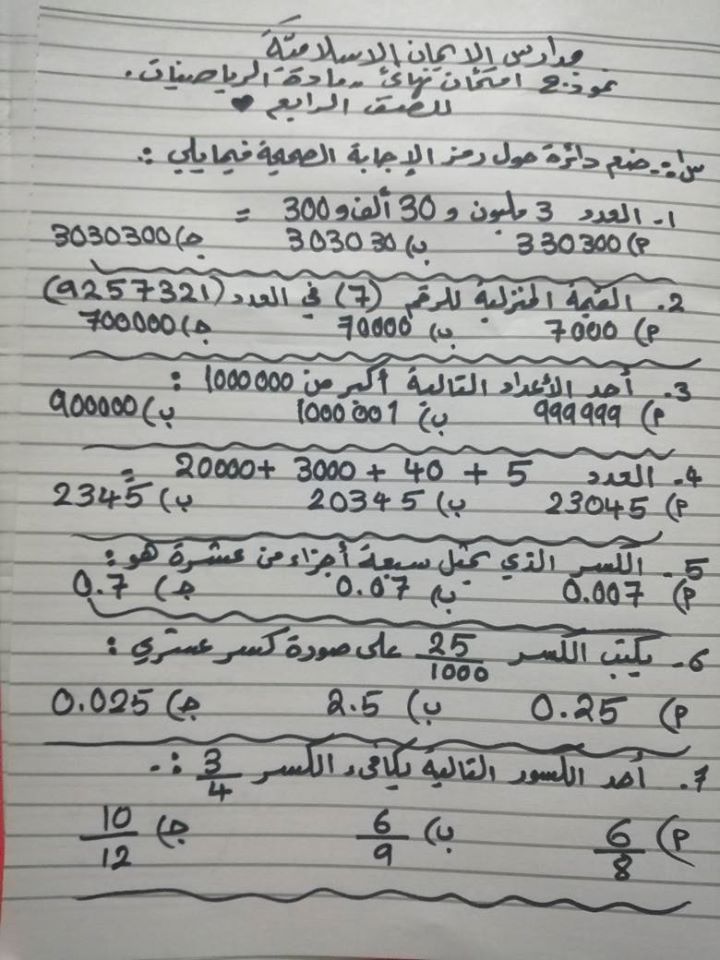 مدارس الايمان الاسلاميّة
نموذج امتحان نهائي - مادة الرياضيات.
للصف الرابع ♥
س١:- ضع دائرة حول رمز الإجابة الصحيحة فيما يلي :.
١- العدد 3 مليون و 30 ألف و 300 =
أ) 330300 ب) 303030 ج) 3030300
2. القيمة المنزلية للرقم (7) في العدد (9257321)
أ) 7000 ب) 70000 ج) 700000
3. أحد الأعداد التالية أكبر من 1000000 :
أ) 999999 ب) 1000001 ب) 900000
4. العدد 20000+ 3000 + 40 + 5 =
أ) 23045 ب) 20345 ب) 2345
5. الكسر الذي يمثل سبعة أجزاء من عشرة هو :
أ) 0.007 ب) 0.07 ج) 0.7
6. يكتب الكسر 25/1000 على صورة كسر عشري :
أ) 0.25 ب) 2.5 ج) 0.025
7. أحد الكسور التالية يكافىء الكسر 3/4 :.
أ) 6/8 ب) 6/9 ج) 10/12